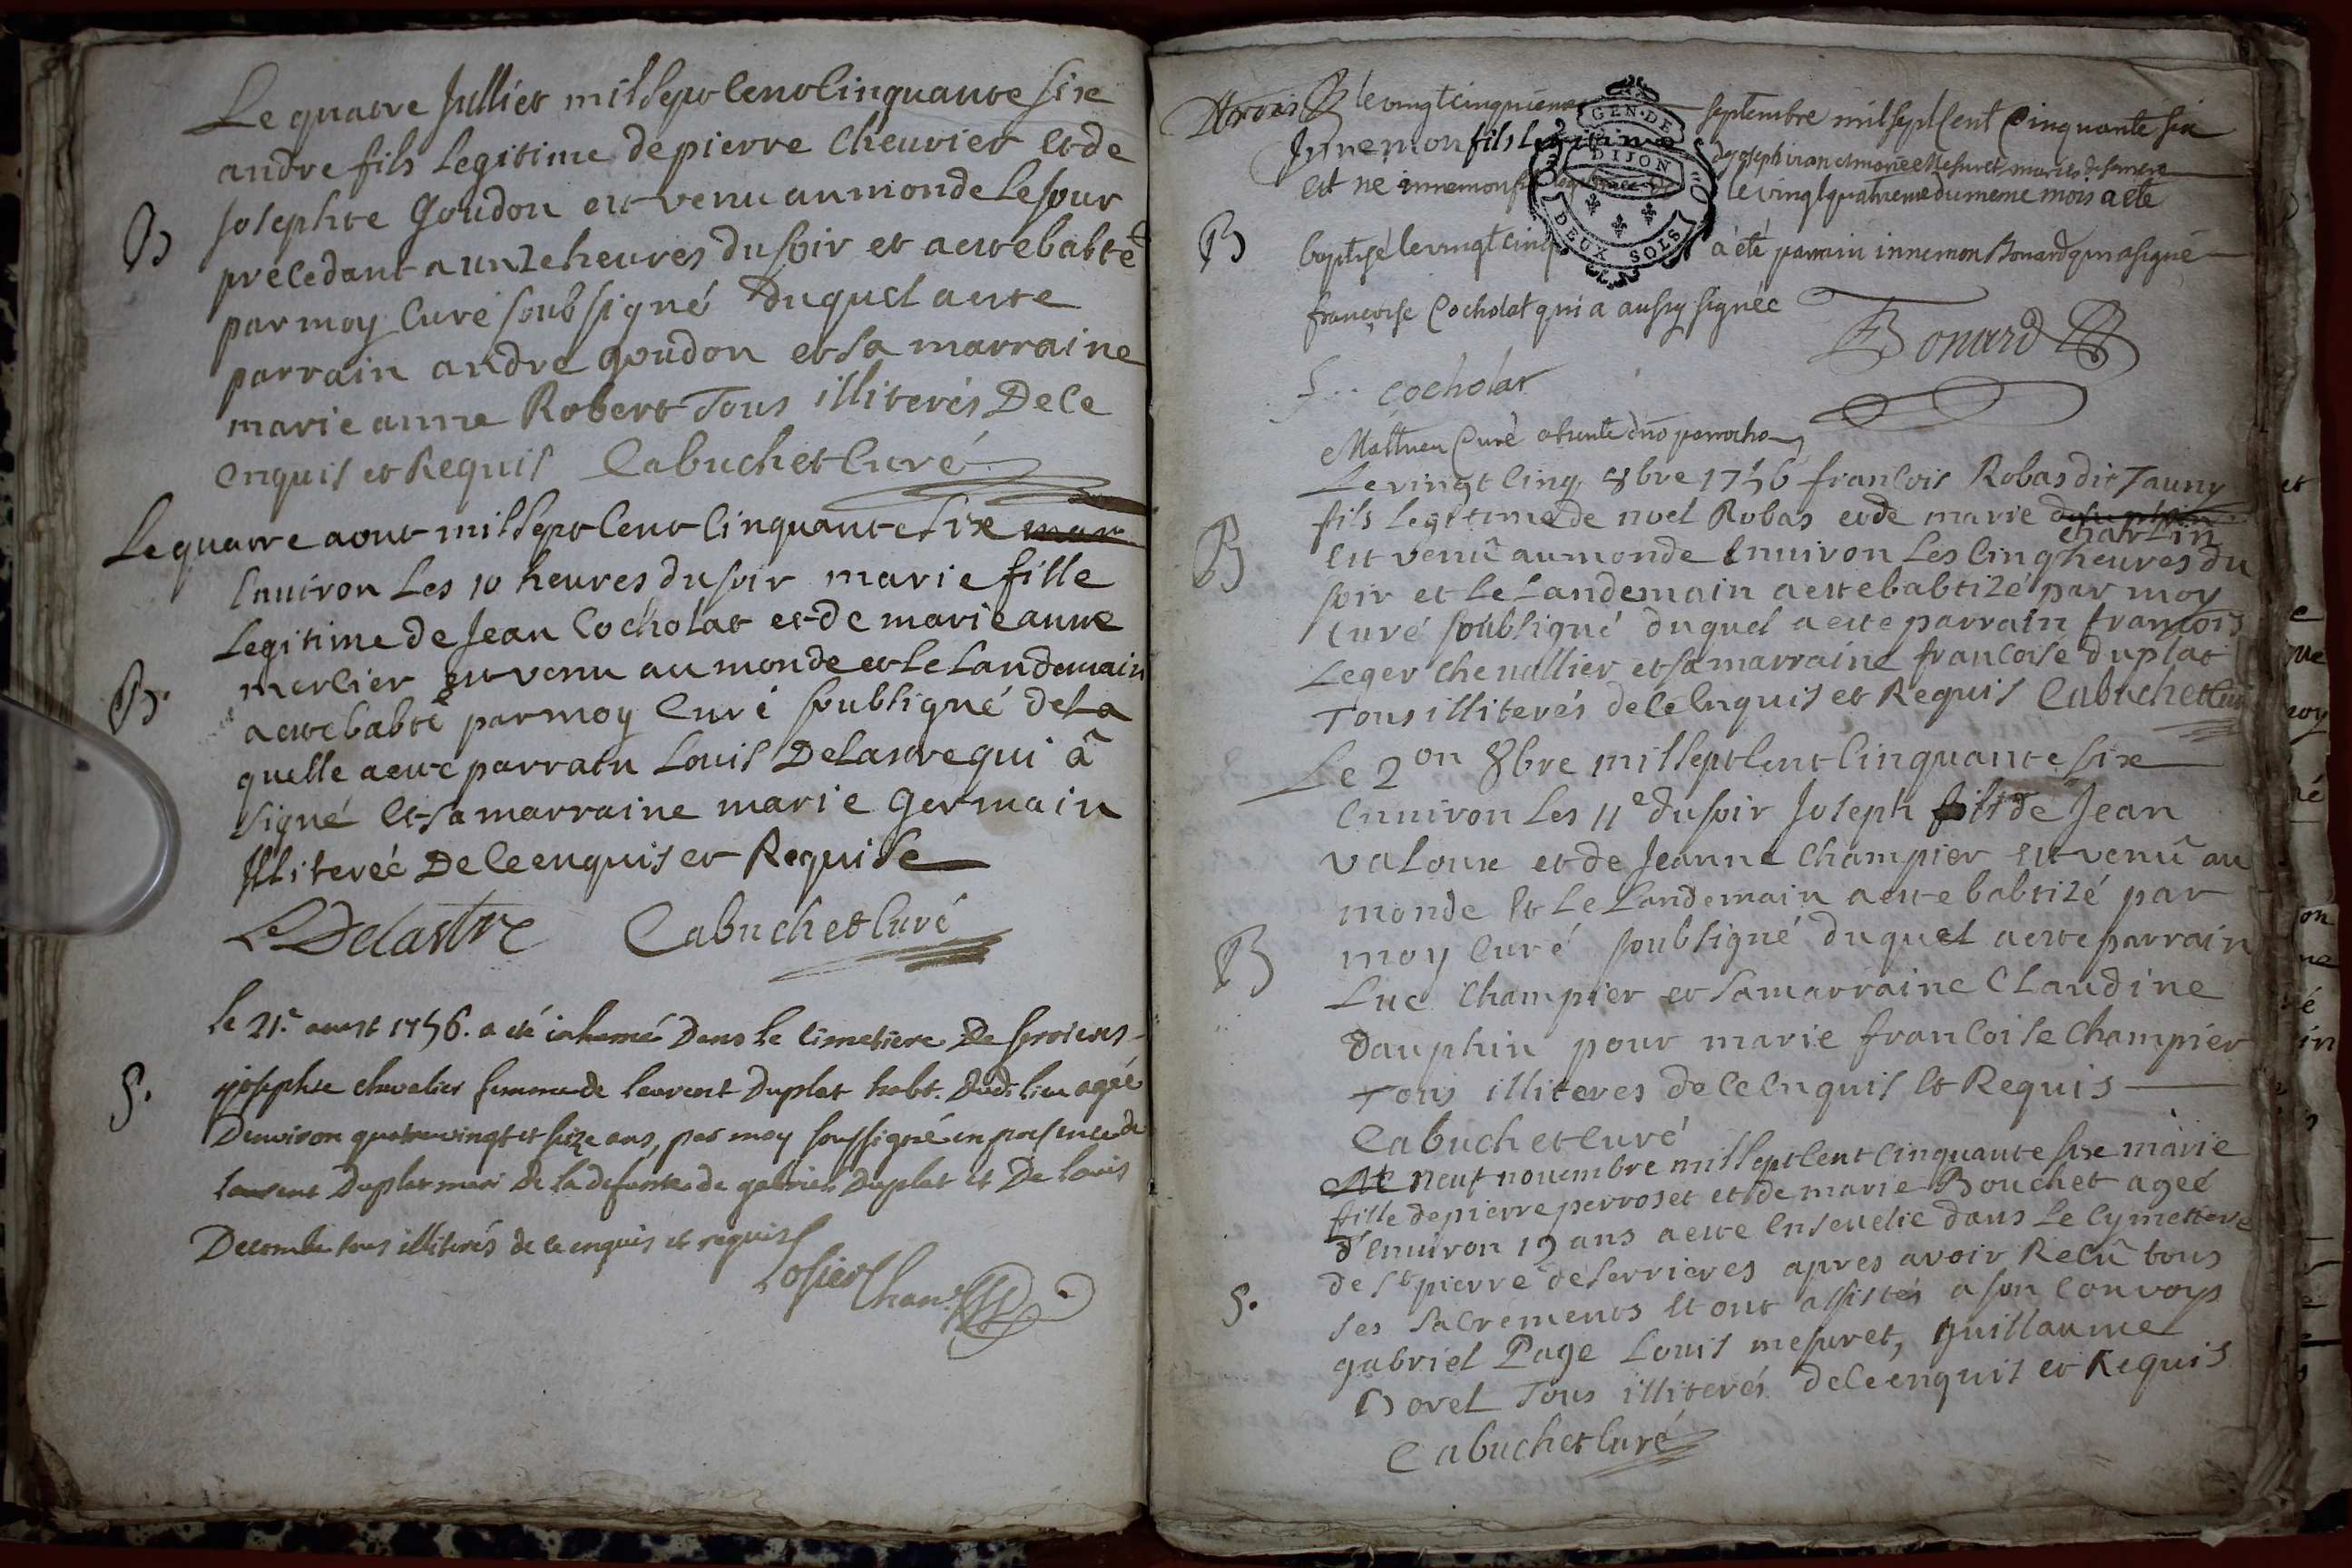 Le quatre Julliet mil sept cent cinquante six
andre fils Legitime de pierre Cheurier et de
Josephte Goudon est venu au monde le jour
B
précedant a unze heures du soir et a este babté
par moy Curé soubsigné Duquel a este
parrain andre goudon et sa marraine
marie anne Robert Tous illiterés De ce
enquis et Requis Cabuchet Curé
Le quatre aout mil sept cent cinquante six
Environ Les 10 heures du soir marie fille
Legitime de Jean Cocholat et de marie anne
merlier est venu au monde et le Landemain
B.
a este babté par moy Curé soubsigné de La
quelle a este parrain Louis Delastre qui â
signé et sa marraine marie Germain
Illiterée De ce enquis et Requise
L Delastre Cabuchet Curé
le 21e. aoust 1756. a été inhumé Dans le Cimetiere De
josephte chevalier femme de laurent Duplat habt. Dudt. lieu agée
S.
D'environ quatrevingt et seize ans, par moy soussigné en presence de
laurent Duplat mari De la defunte de gabriel Duplat et De louis
Decombe tous illiterés de ce enquis et requis
Losier
B le vingtcinquieme septembre mil sept cent Cinquante six
Innemon fils Legitime
de joseph et marie Mesuret mariés
est ne innemon le vingt quatrieme du meme mois a eté
B
baptisé le vingt cinq a été parrain innemon Bonard qui a signé
françoise Cocholat qui a aussy signée
Bonard
f.. cocholat
Mathieu Curé absente dno parocho
Le vingt cinq 8bre 1756 francois Robas dit Tauny
fils Legitime de noel Robas et de marie dauphin
charlin
B
Est venû au monde Enuiron Les cinq heures du
soir et Le Landemain a este babtizé par moy
Curé soubsigné duquel a este parrain francois
Leger chevallier et sa marraine francoise duplat
Tous illiterés de ce Enquis et Requis Cabuchet Curé
Le 2on 8bre mil sept cent cinquante six
Enuiron Les 11e du soir Joseph fils de Jean
Valoux et de Jeanne Champier est venû au
monde et Le Landemain a este babtizé par
B
moy Curé soubsigné duquel a este parrain
Luc Champier et sa marraine Claudine
Dauphin pour marie francoise Champier
Tous illiteres de ce Enquis et Requis
Cabuchet Curé
Neuf nouembre mil sept cent cinquante six marie
fille de pierre perroset et de marie Bouchet ageé
d'Enuiron 19 ans a este Enseuelie dans Le Cymettere
de St pierre de serrieres apres avoir Recû tous
S.
ses sacrements et ont assistés a son Convoys
gabriel Page Louis mesuret, guillaume
Borel Tous illiterés de ce enquis et Requis
Cabuchet Curé
GEN. DE
DIJON
DEUX SOLS